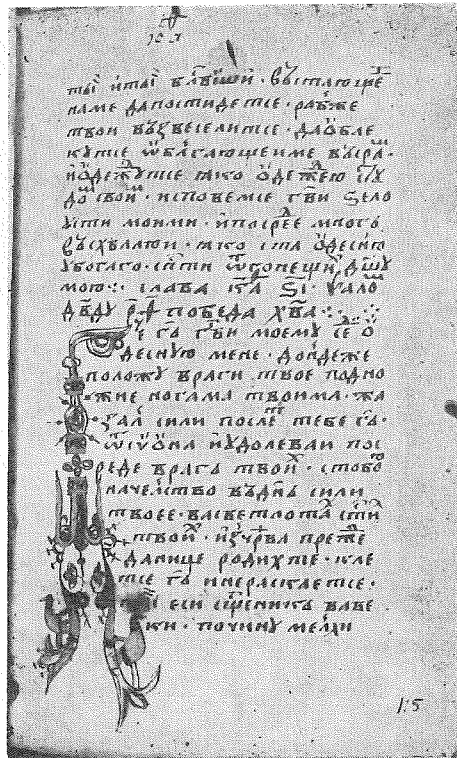 ты҇ и҆ ты҇ бл҃ви́ши · въстающе́и
на ме да постидет се · раб же
твои възвеселит се · да ѡбле
кут се ѡбл҃гающеи ме въ сра́м ·
и ѡ҆деж҆ут се ꙗко ѡ҆дежею сту
дом свои́м · исповем се гв҃и ѕело
усти моими · и҆ посре́д многꙋ
въсхвалю и · ꙗко ста ѡ҆десную
убогаго · сп҃сти ѿ гонещи́х дш҃у
мою ·:· слава ка҃ ѕ҃і · ѱало́
дв҃ду р҃ѳ победа хв҃а ·:·
че гь гв҃и моему се́д ѡ҆
десную мене · до́ндеже
положу враги твое подно
жие ногама твоима · жа
зал сили послет тебе гь ·
ѿ сиѡна и удолеваи пос
реде врагь твои́х · с тобо́ю
начелство въ дн҃ь сили
твоее · вь светлота́ст҃и
твои́х · и҆з чрева преже
даннице родих те · кле
т се гь и не раскает се ·
ти еси сщ҃еникь вь ве
ки · по чину мелхи
1:5